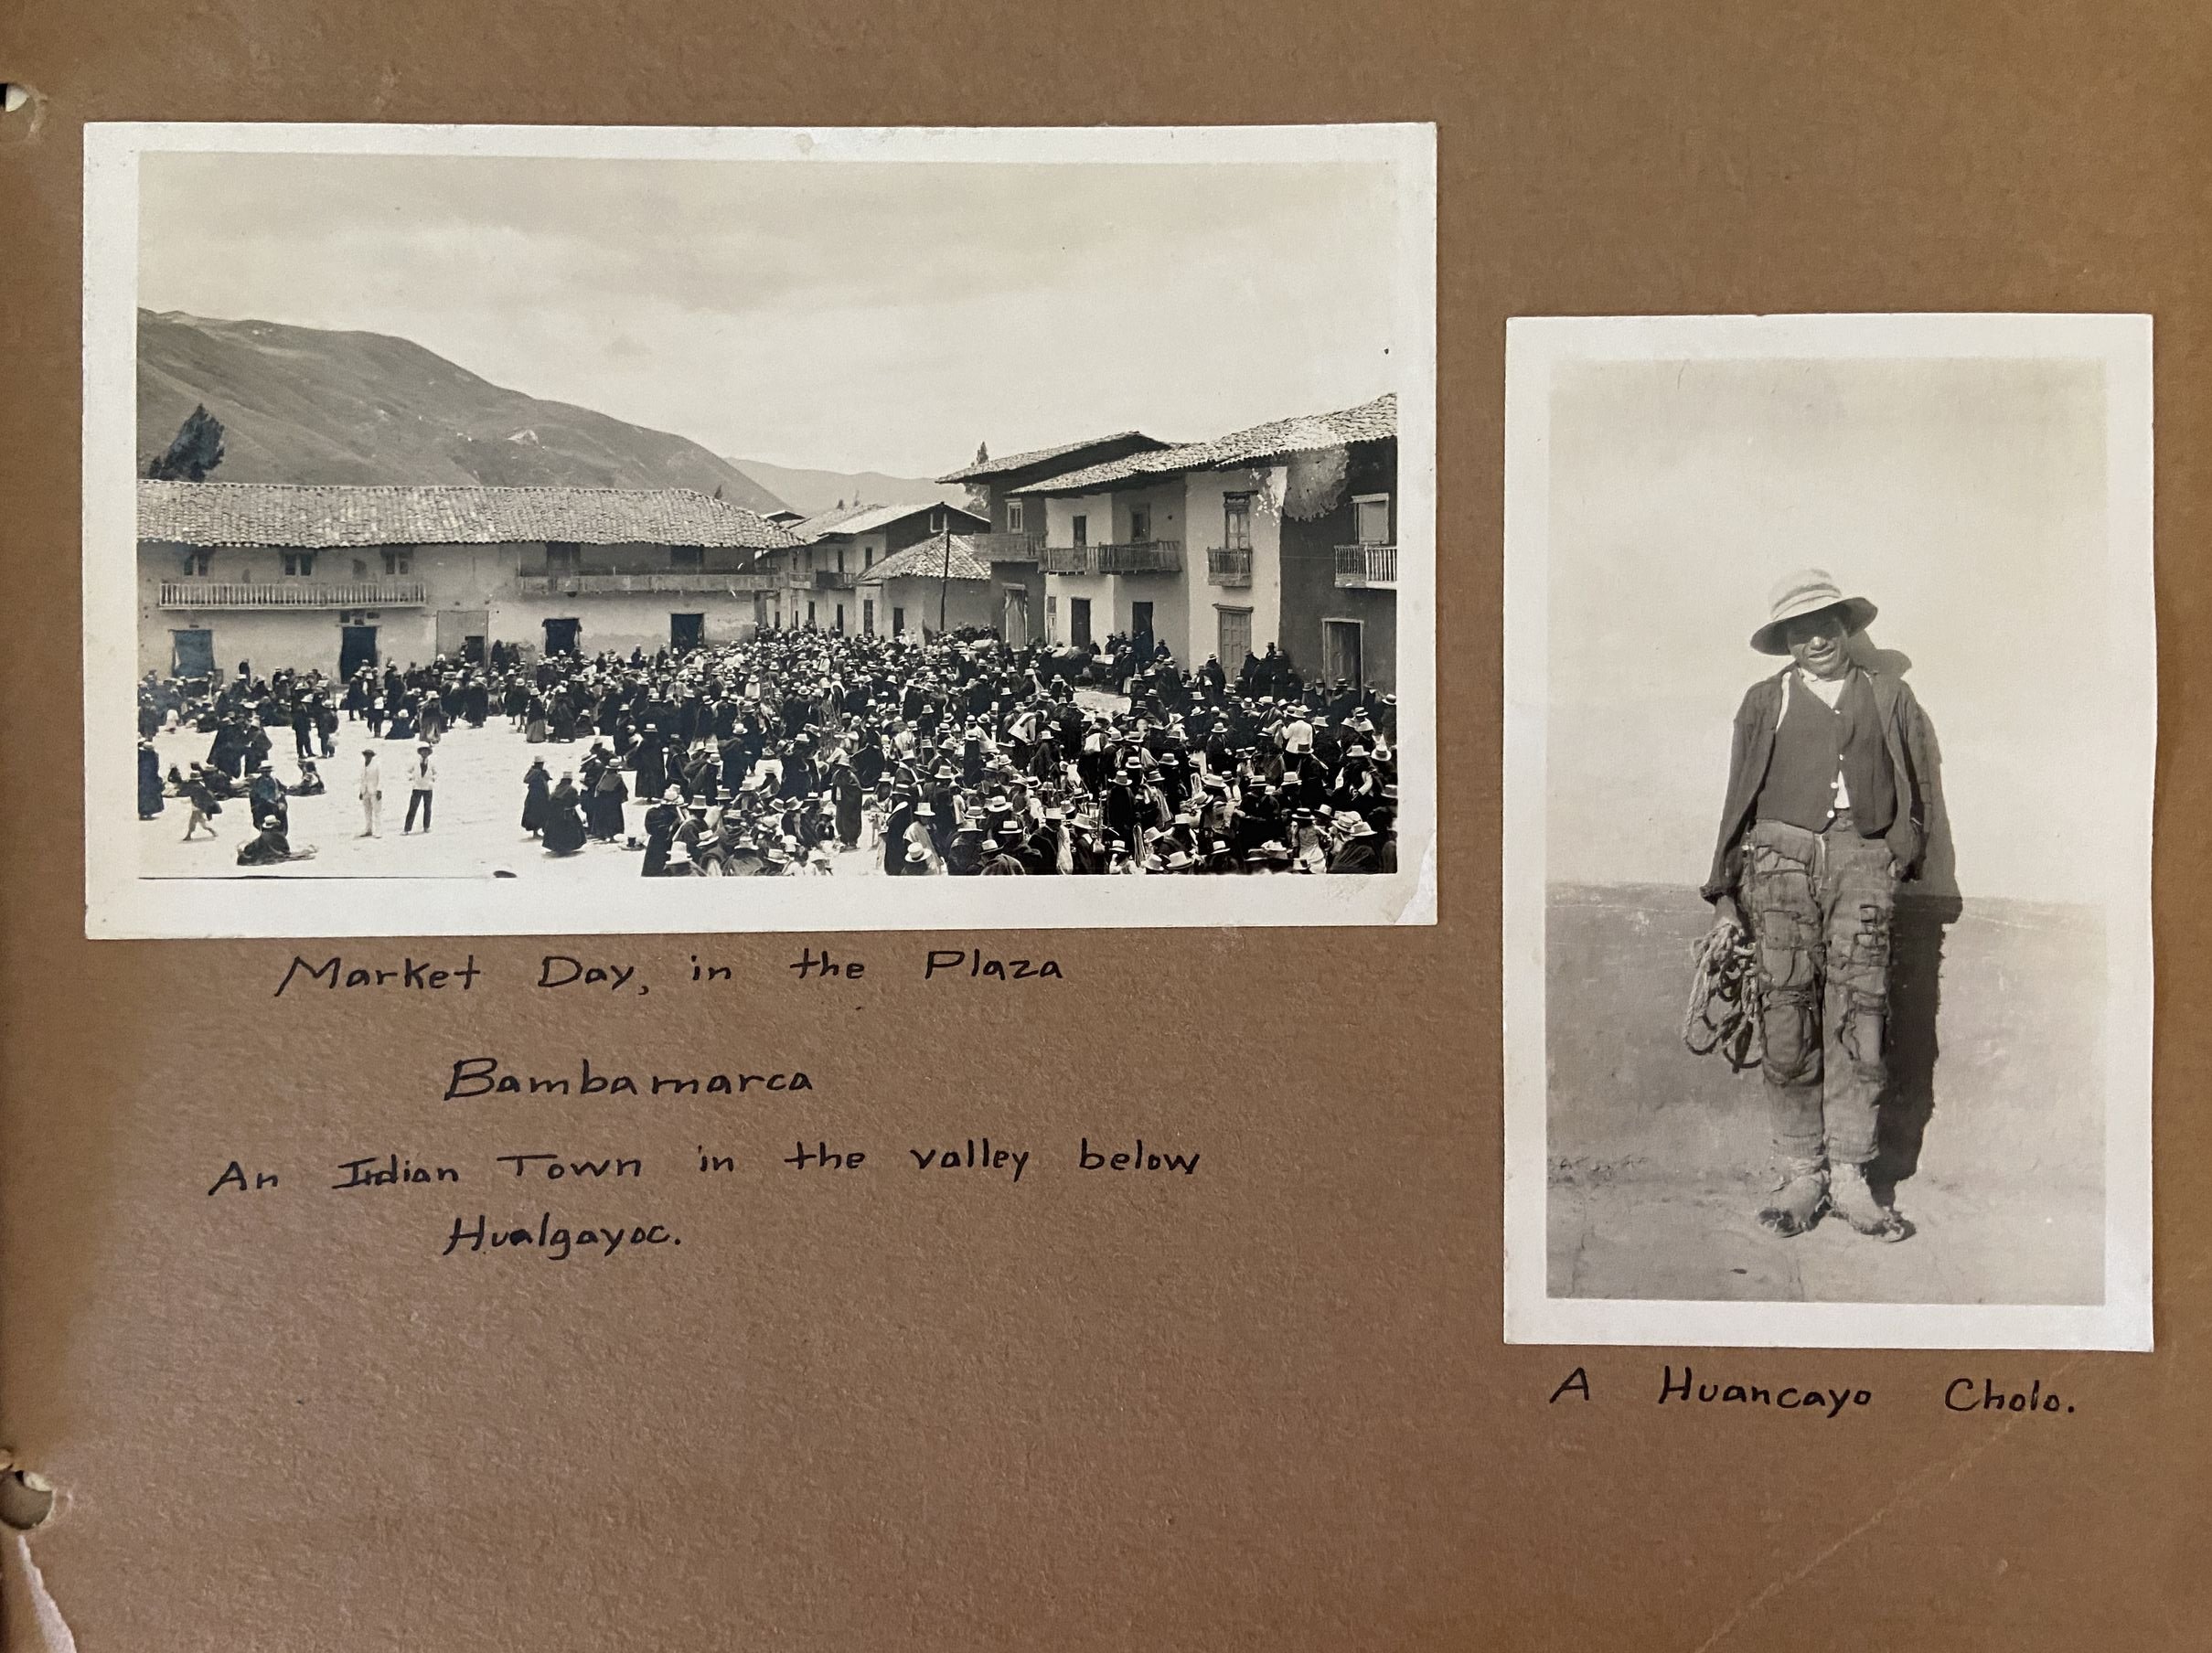 Market Day, in the Plaza
Bambamarca
An Indian Town in the valley below
Hualgayoc.
A Huancayo Cholo.